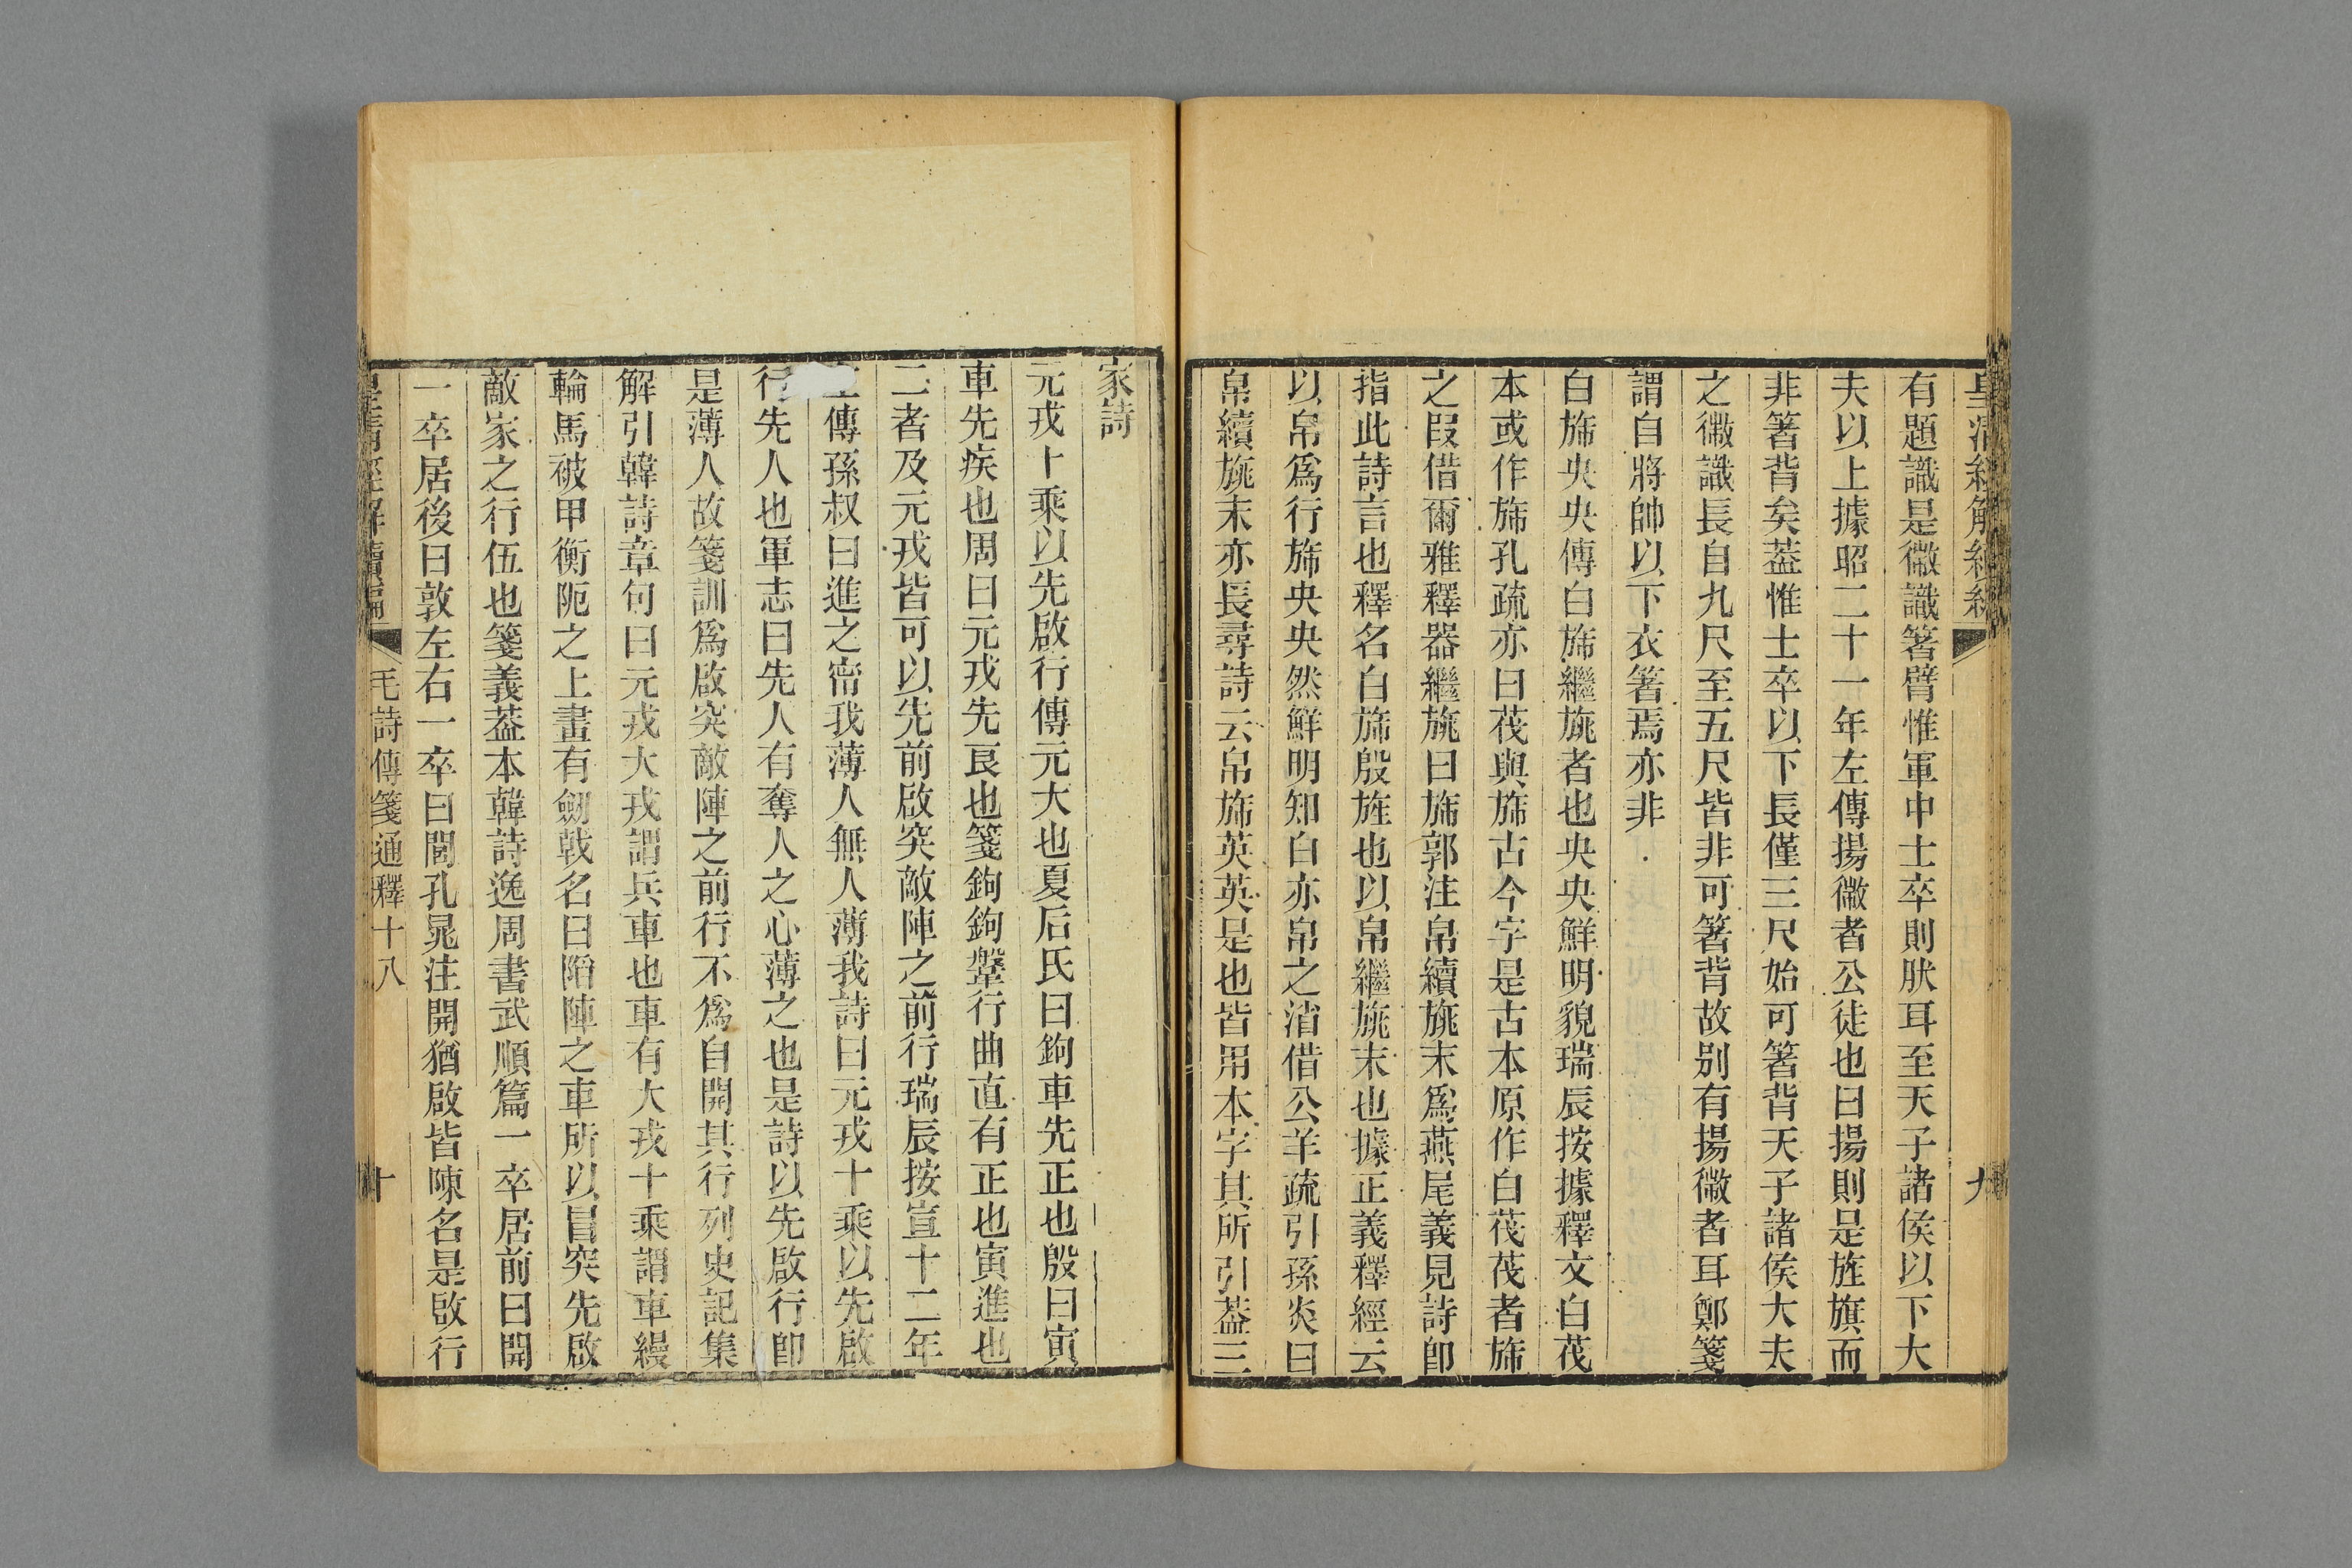 皇清經解續編
九
有題識是徽識箸臂惟軍中士卒則肰耳至天子諸侯以下大
夫以上據昭二十一年左傳揚徽者公徒也曰揚則是旌旗而
非箸背矣葢惟士卒以下長僅三尺始可箸背天子諸侯大夫
之徽識長自九尺至五尺皆非可箸背故別有揚徽者耳鄭箋
謂自將帥以下衣箸焉亦非
白旆央央傳白旆繼旐者也央央鮮明貌瑞辰按據釋文白茷
本或作旆孔疏亦曰茷與旆古今字是古本原作白茷茷者旆
之叚借爾雅釋器繼旐曰旆郭注帛續旐末爲燕尾義見詩卽
指此詩言也釋名白旆殷旌也以帛繼旐末也據正義釋經云
以帛爲行旆央央然鮮明知白亦帛之渻借公羊疏引孫炎曰
帛續旐末亦長尋詩云帛旆英英是也皆用本字其所引葢三
家詩
元戎十乘以先啟行傳元大也夏后氏曰鉤車先正也殷曰寅
車先疾也周曰元戎先良也箋鉤鉤鞶行曲直有正也寅進也
二者及元戎皆可以先前啟突敵陣之前行瑞辰按宣十二年
傳孫叔曰進之甯我薄人無人薄我詩曰元戎十乘以先啟
行先人也軍志曰先人有奪人之心薄之也是詩以先啟行卽
是薄人故箋訓爲啟突敵陣之前行不爲自開其行列史記集
解引韓詩章句曰元戎大戎謂兵車也車有大戎十乘謂車縵
輪馬被甲衡軛之上畫有劒戟名曰陷陣之車所以冒突先啟
敵家之行伍也箋義葢本韓詩逸周書武順篇一卒居前曰開
一卒居後曰敦左右一卒曰閭孔晁注開猶啟皆陳名是啟行
皇清經解續編
毛詩傳箋通釋十八
十